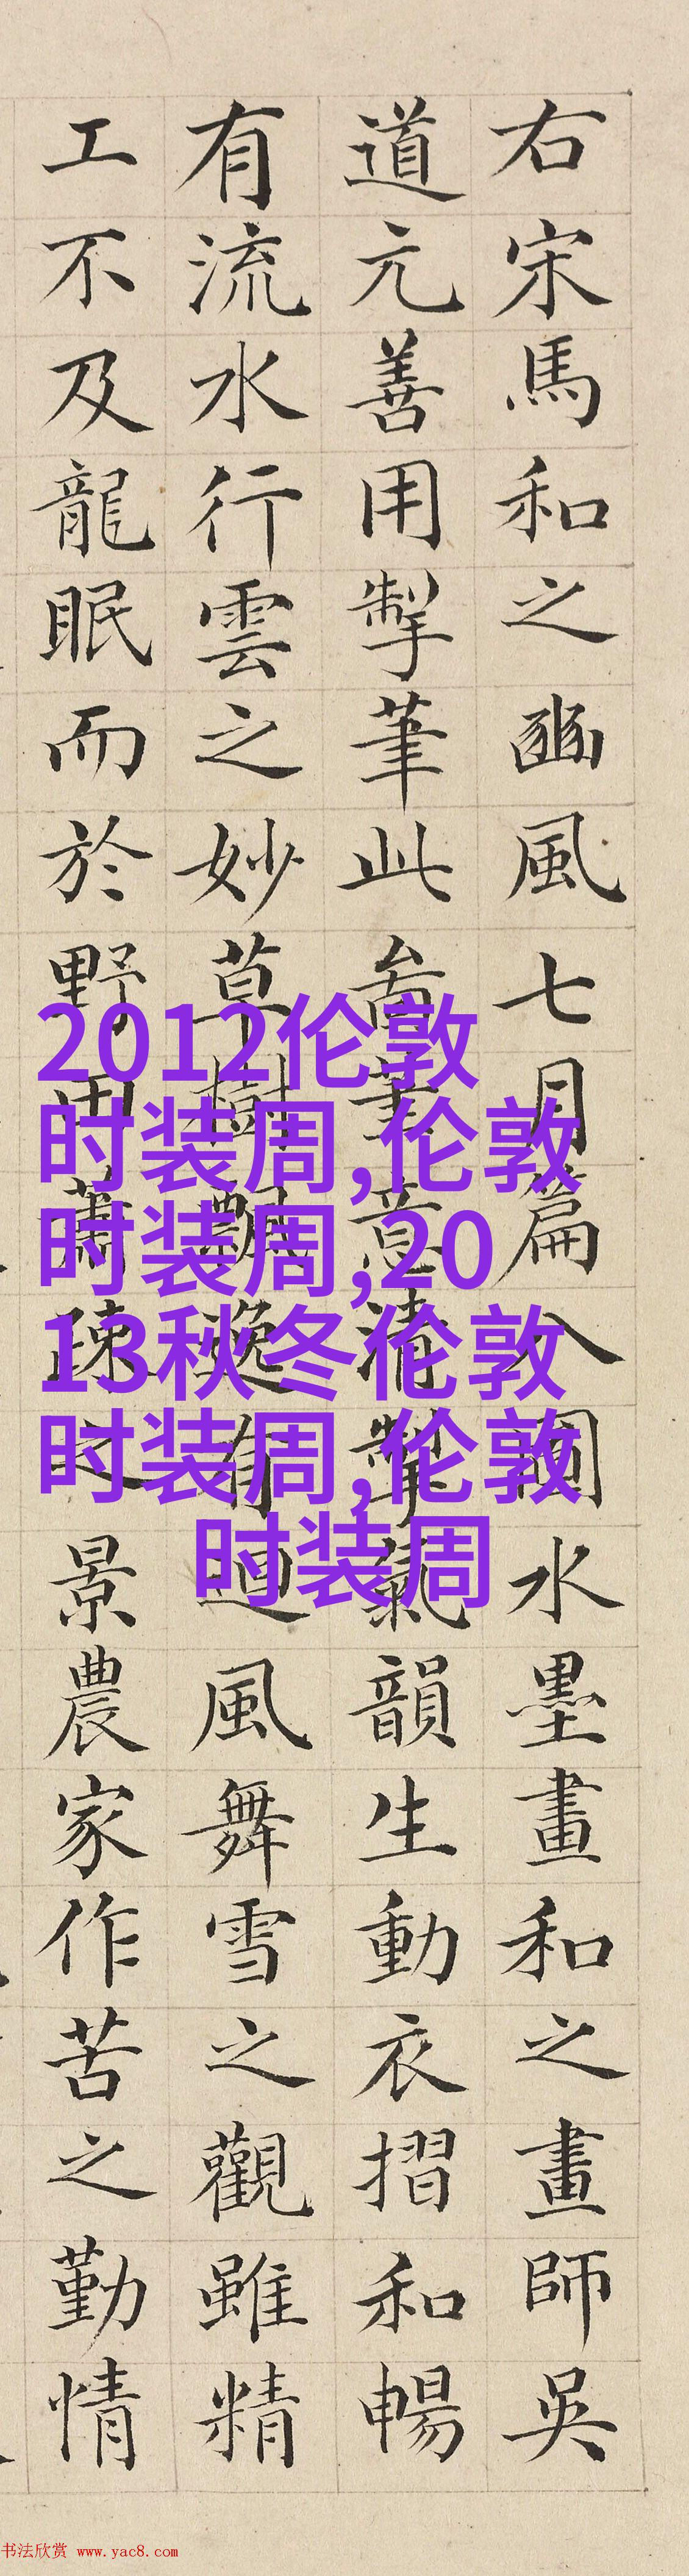 右宋馬和之豳風七月篇八圖水墨畫和之畫師吳
道元善用掣筆此意清氣韻生動衣摺和暢
有流水行雲之妙草樹飄逸有迴風舞雪之觀雖精
工不及龍眠而於野田蕭疎之景農家作苦之勤情
2012伦敦
时装周,伦敦
时装周,20
13秋冬伦敦
时装周,伦敦
时装周
书法欣赏 www.yac8.com